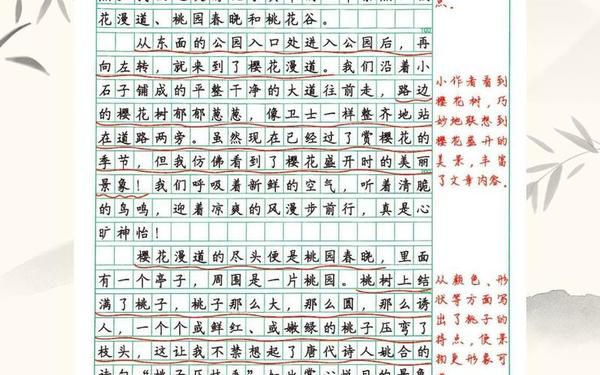 花漫道、桃园春晓和桃花谷。
100
从东面的公园入口处进入公园后，再
向左转，就来到了樱花漫道。我们沿着小
石子铺成的平整干净的大道往前走，路边
的樱花树郁郁葱葱，像卫士一样整齐地站
在道路两旁。虽然现在已经过了赏樱花的
季节，但我仿佛看到了樱花盛开时的美丽
景象！我们呼吸着新鲜的空气，听着清脆
的鸟鸣，迎着凉爽的风漫步前行，真是心
旷神怡！
樱花漫道的尽头便是桃园春晓，里面
有一个亭子，周围是一片桃园。桃树上结
满了桃子，桃子那么大，那么圆，那么诱
人，一个个或鲜红、或嫩绿的桃子压弯了
枝头，这让我不禁想起了唐代诗人姚合的
点。
小作者看到
樱花树，巧
妙地联想到
樱花盛开的
美景，丰富
了文章内容。
从颜色、形
状等方面写
出了桃子的
特点，使景
物更形象可